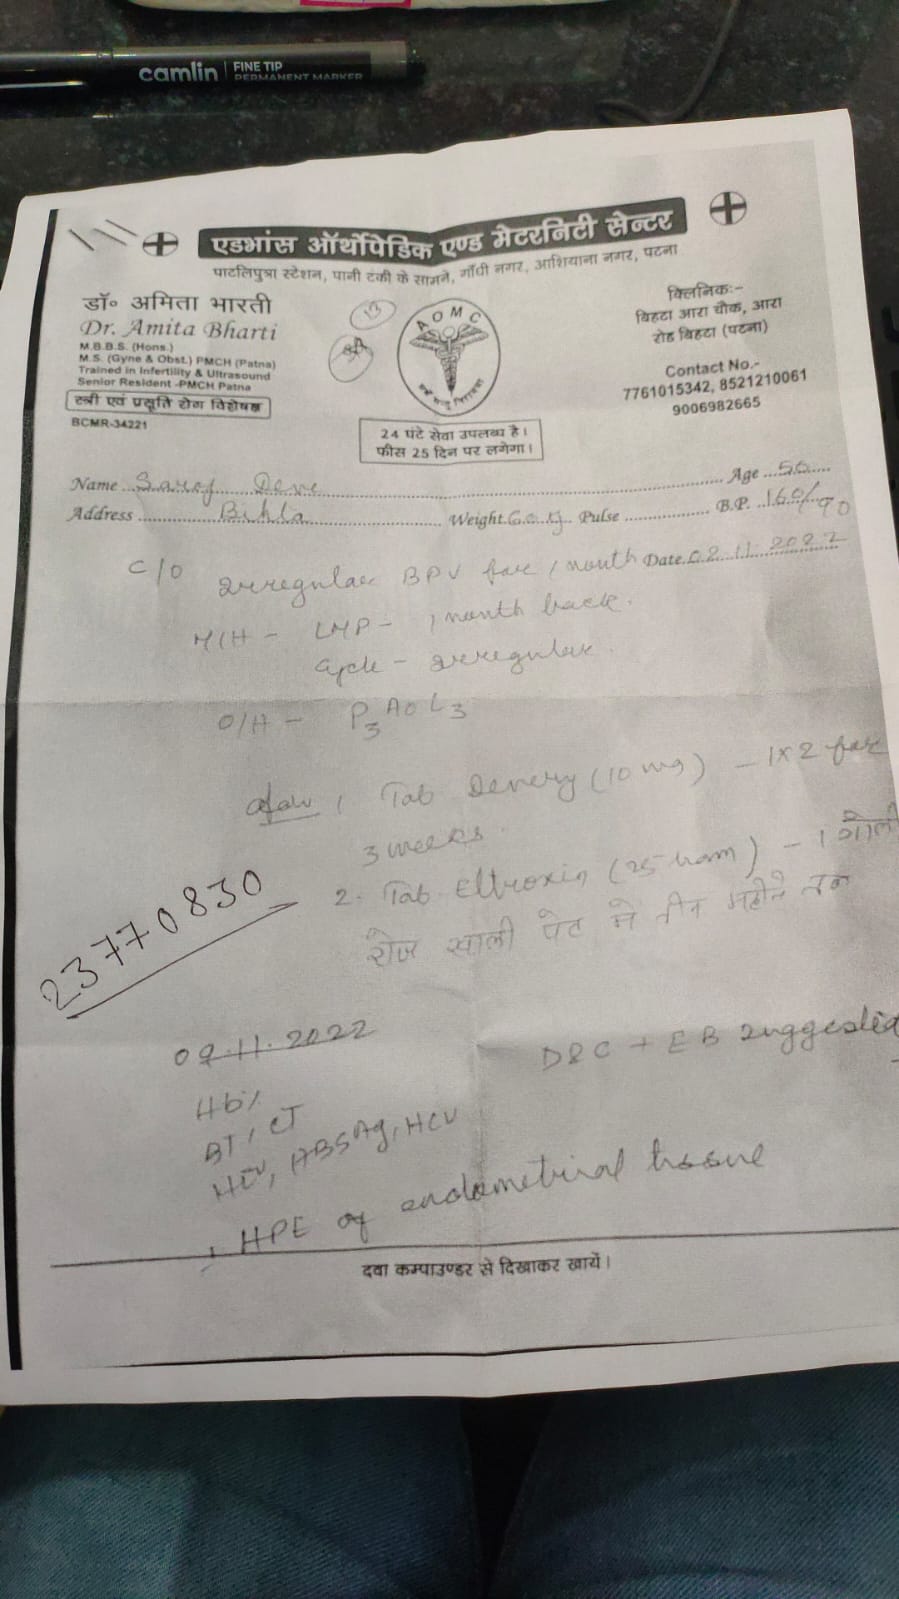 camlin FINE TIP
PERMANENT MARKER
एडभांस ऑर्थोपेडिक एण्ड मेटरनिटी सेन्टर
पाटलिपुत्रा स्टेशन, पानी टंकी के सामने, गाँधी नगर, आशियाना नगर, पटना
डॉ० अमिता भारती
Dr. Amita Bharti
M.B.B.S. (Hons.)
M.S. (Gyne & Obst.) PMCH (Patna)
Trained in Infertility & Ultrasound
Senior Resident -PMCH Patna
स्त्री एवं प्रसूति रोग विशेषज्ञ
BCMR-34221
AOMC
24 घंटे सेवा उपलब्ध है।
फीस 25 दिन पर लगेगा।
क्लिनिक:-
बिहटा आरा चौक, आरा
रोड बिहटा (पटना)
Contact No.-
7761015342, 8521210061
9006982665
Name Saroj Devi Age 50
Address Bihta Weight 60 kg Pulse B.P. 160/90
Date 02.11.2022
C/O irregular BPV for 1 month
M/H - LMP - 1 month back.
Cycle - irregular.
O/H - P3 A0 L3
1 Tab (10 mg) - 1x2 for
3 weeks.
2. Tab Eltroxin (25 ) - 1 गोली
रोज खाली पेट में तीन महीने तक
23770830
09.11.2022
D&C + EB suggested
Hb%
BT, CT
HIV, HBSAg, HCV
HPE of endometrial tissue
दवा कम्पाउण्डर से दिखाकर खायें।